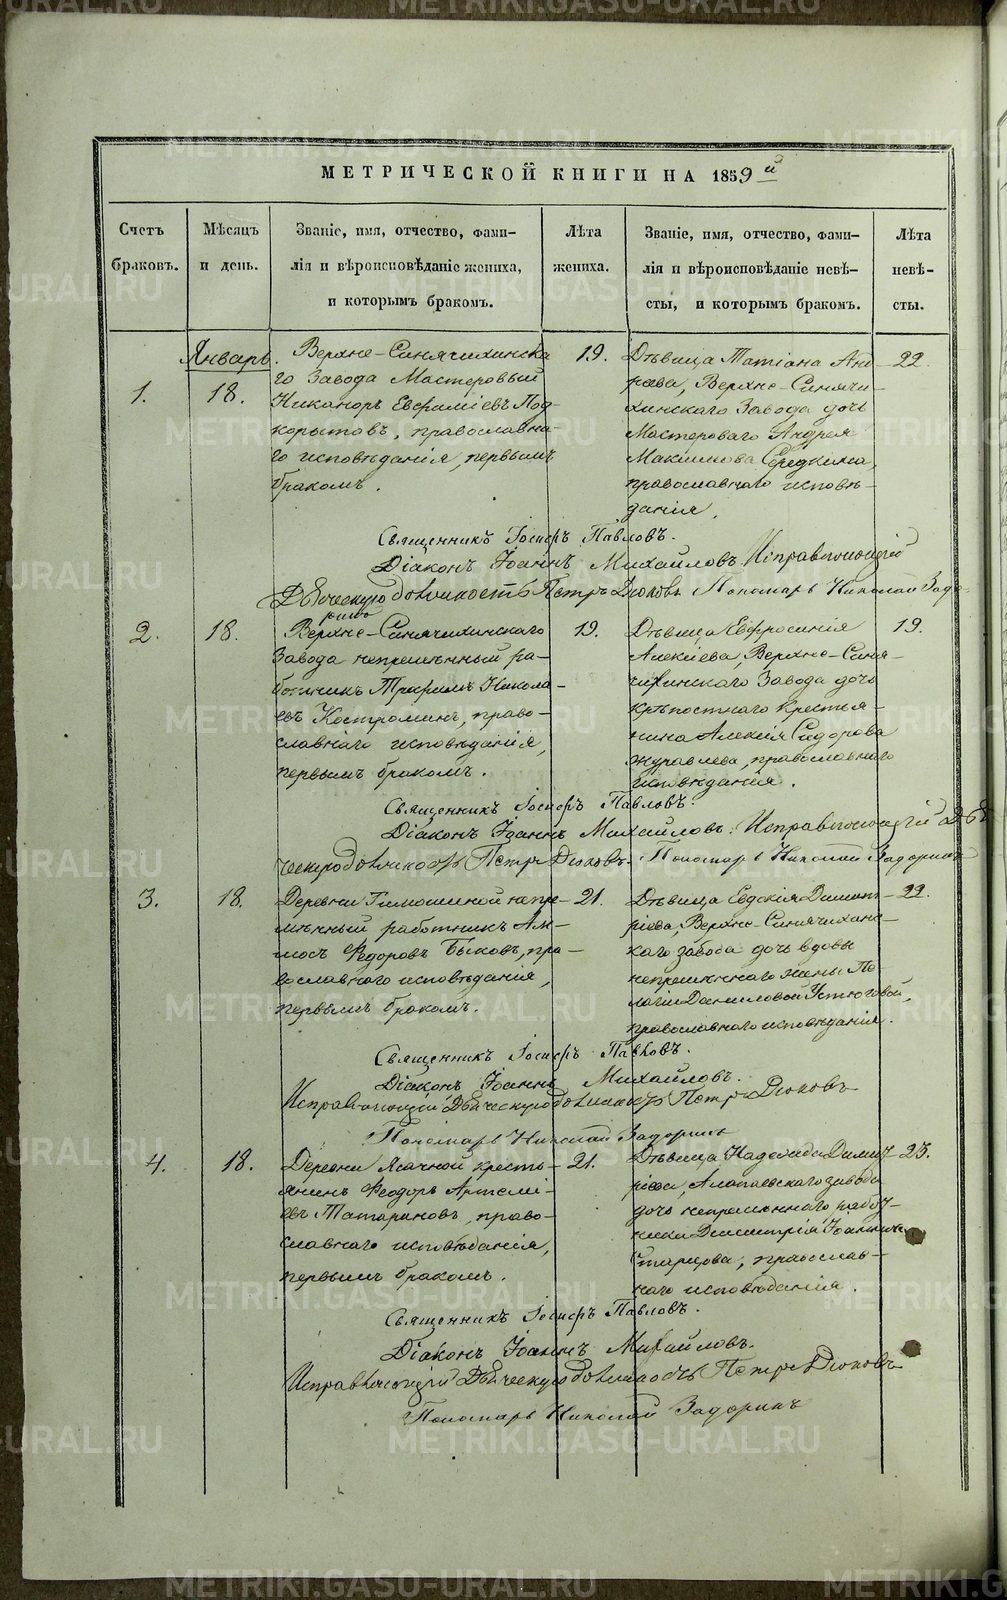 МЕТРИЧЕСКОЙ КНИГИ НА 1859й
Счетъ браковъ.
Мѣсяцъ и день.
Званіе, имя, отчество, фами-
лія и вѣроисповѣданіе жениха,
и которымъ бракомъ.
Лѣта жениха.
Званіе, имя, отчество, фами-
лія и вѣроисповѣданіе невѣ-
сты, и которымъ бракомъ.
Лѣта невѣ-
сты.
Январь.
1.
18.
Верхне-Синячихинска
го Завода Мастеровый
Никаноръ Евфиміевъ Под-
корытовъ, православна-
го исповѣданія, первымъ
бракомъ.
19.
Дѣвица Татіана Анд
реева, Верхне-Синячи-
хинскаго Завода дочь
Мастероваго Андрея
Максимова Середкина,
православнаго исповѣ-
данія.
22.
Священникъ Іосифъ Павловъ.
Діаконъ Іоаннъ Михайловъ. Исправляющій
Дьяческую должность Петръ Дюковъ. Пономарь Николай Задо-
ринъ
2.
18.
Верхне-Синячихинскаго
Завода непремѣнный ра-
ботникъ Трофимъ Никола-
евъ Костроминъ, право-
славнаго исповѣданія,
первымъ бракомъ.
19.
Дѣвица Евфросинія
Алексіева, Верхне-Синя-
чихинскаго Завода дочь
крѣпостнаго крестья-
нина Алексія Сидорова
Журавлева, православнаго
исповѣданія.
19.
Священникъ Іосифъ Павловъ.
Діаконъ Іоаннъ Михайловъ. Исправляющій Дья
ческую должность Петръ Дюковъ. Пономарь Николай Задоринъ
3.
18.
Деревни Тимошиной непре-
мѣнный работникъ Ам-
мосъ Федоровъ Быковъ, пра-
вославнаго исповѣданія,
первымъ бракомъ.
21.
Дѣвица Евдокія Димит-
ріева, Верхне-Синячихинс-
каго завода дочь вдовы
непремѣннаго жены Пе-
лагіи Даниловой Устюговой,
православнаго исповѣданія.
22.
Священникъ Іосифъ Павловъ.
Діаконъ Іоаннъ Михайловъ.
Исправляющій Дьяческую должность Петръ Дюковъ
Пономарь Николай Задоринъ
4.
18.
Деревни Ясачной кресть-
янинъ Феодоръ Артемі-
евъ Татариновъ, право-
славнаго исповѣданія,
первымъ бракомъ.
21.
Дѣвица Надежда Димит-
ріева, Алапаевскаго завода
дочь непремѣннаго работ-
ника Димитрія Іоаннова
Старцова, православ-
наго исповѣданія.
23.
Священникъ Іосифъ Павловъ.
Діаконъ Іоаннъ Михайловъ.
Исправляющій Дьяческую должность Петръ Дюковъ
Пономарь Николай Задоринъ
METRIKI.GASO-URAL.RU